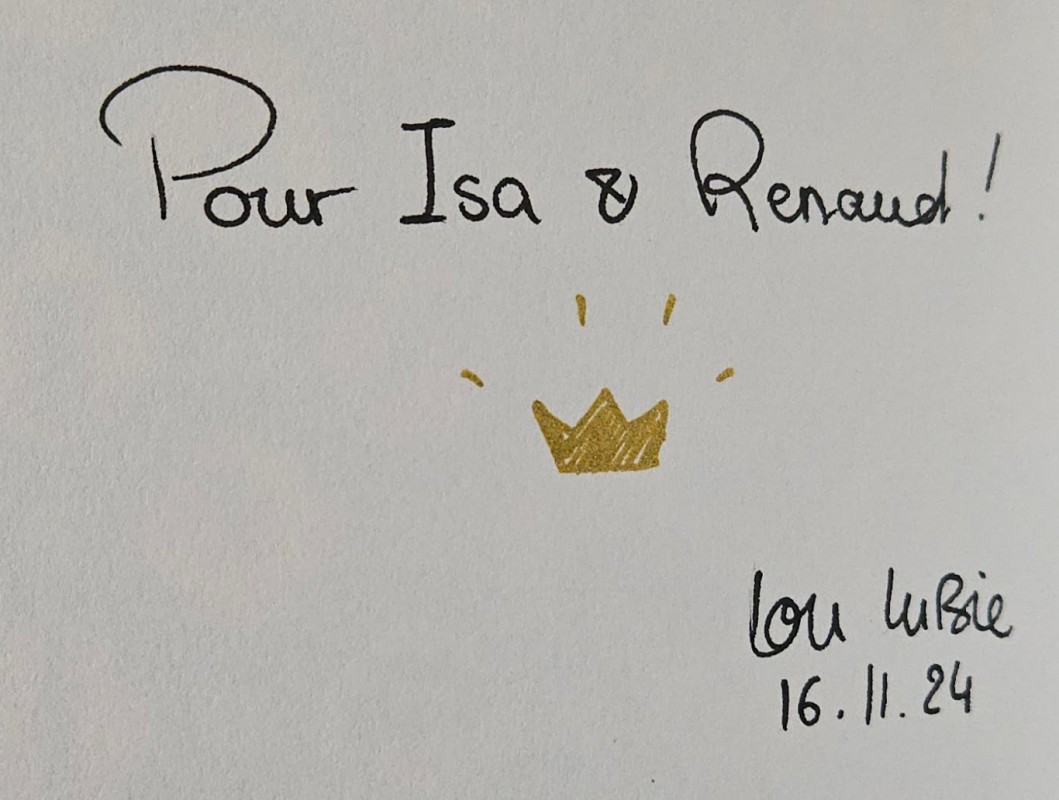 Pour Isa & Renaud !
Lou Lubie
16.11.24